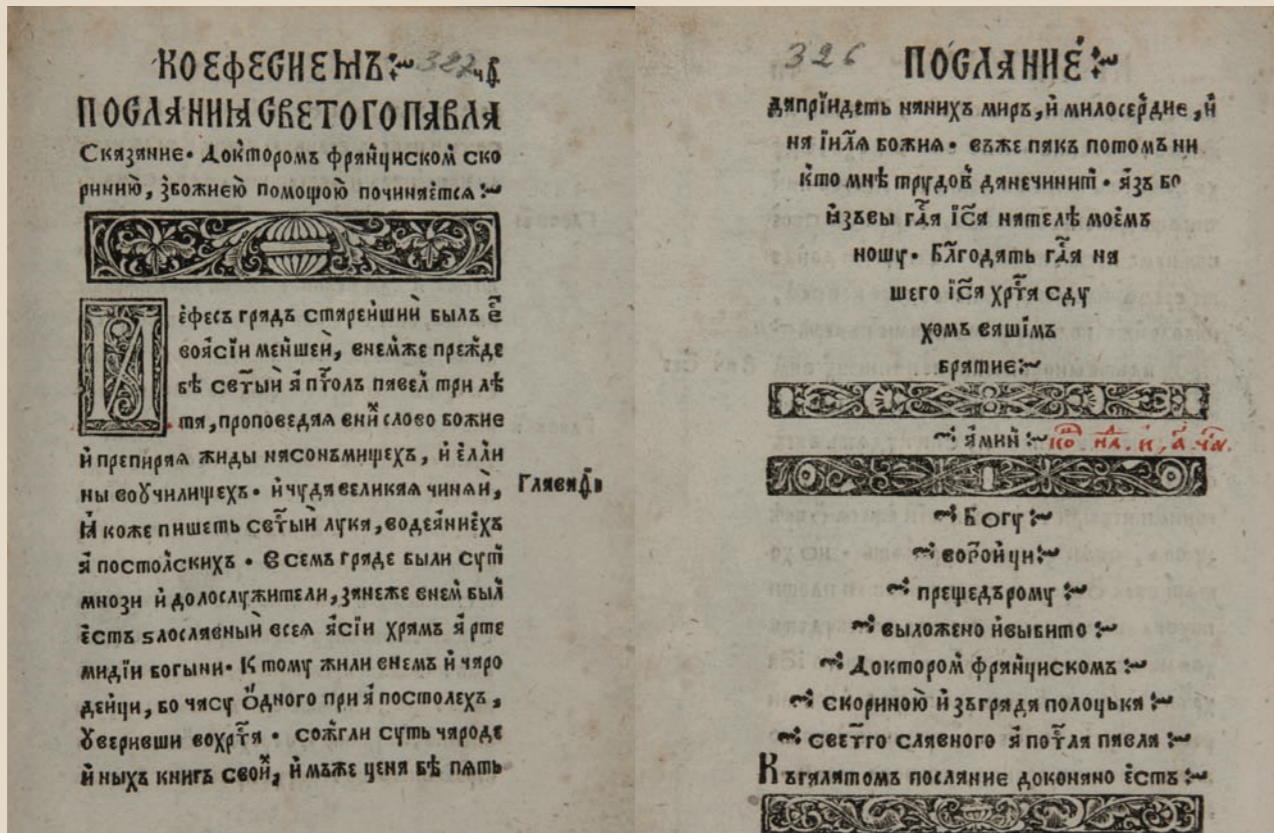 КОЕФЕСИЕМЪ:~ 327 чд҃.
ПОСЛАНИꙖ СВЕТОГО ПАВЛА
Сказание· Докторомъ франциском ско
риною, з божиею помощою починяется:~
Ефесъ градъ старейший былъ е҃
во Асии меншей, внемже прежде
бѣ светый апⷭ҇толъ павел три лѣ
та, проповедая вниⷯ слово божие
и препирая жиды на сонъмищехъ, и елли
ны во ꙋчилищехъ· и чудя великая чиняи,
Ꙗкоже пишеть светый лука, водеяниехъ
апостолскихъ · Всемъ граде были суть
мнози идолослужители, занеже внем был
есть ѕлославный всея Асии храмъ арте
мидии богыни· К тому жили внемъ и чаро
дейци, во часу одного при апостолехъ,
Ꙋверивши во хрⷭ҇та · сожгли суть чароде
йныхъ книгъ своиⷯ, имъже цена бѣ пять
Глава д҃і
326 ПОСЛАНИЕ:~
да прїидеть наниⷯхъ миръ, и милосердие, и
на їиⷧ҇ꙗ божия· въже пакъ потомъ ни
кто мнѣ трудов да нечинит· азъ бо
изъвы гⷭ҇а їс҃а нателѣ моемъ
ношу· Блг҃одать гⷭ҇а на
шего їс҃а хрⷭ҇та с ду
хомъ вашїмъ
братие:~
~: амин :~
~: Богу :~
~: во тройци:~
~: прещедърому :~
~: выложено и выбито :~
~: Доктором францискомъ :~
~: скориною и зъграда полоцька :~
~: светго славного апоⷭ҇тла павла :~
Къгалатомъ послание доконано есть:~